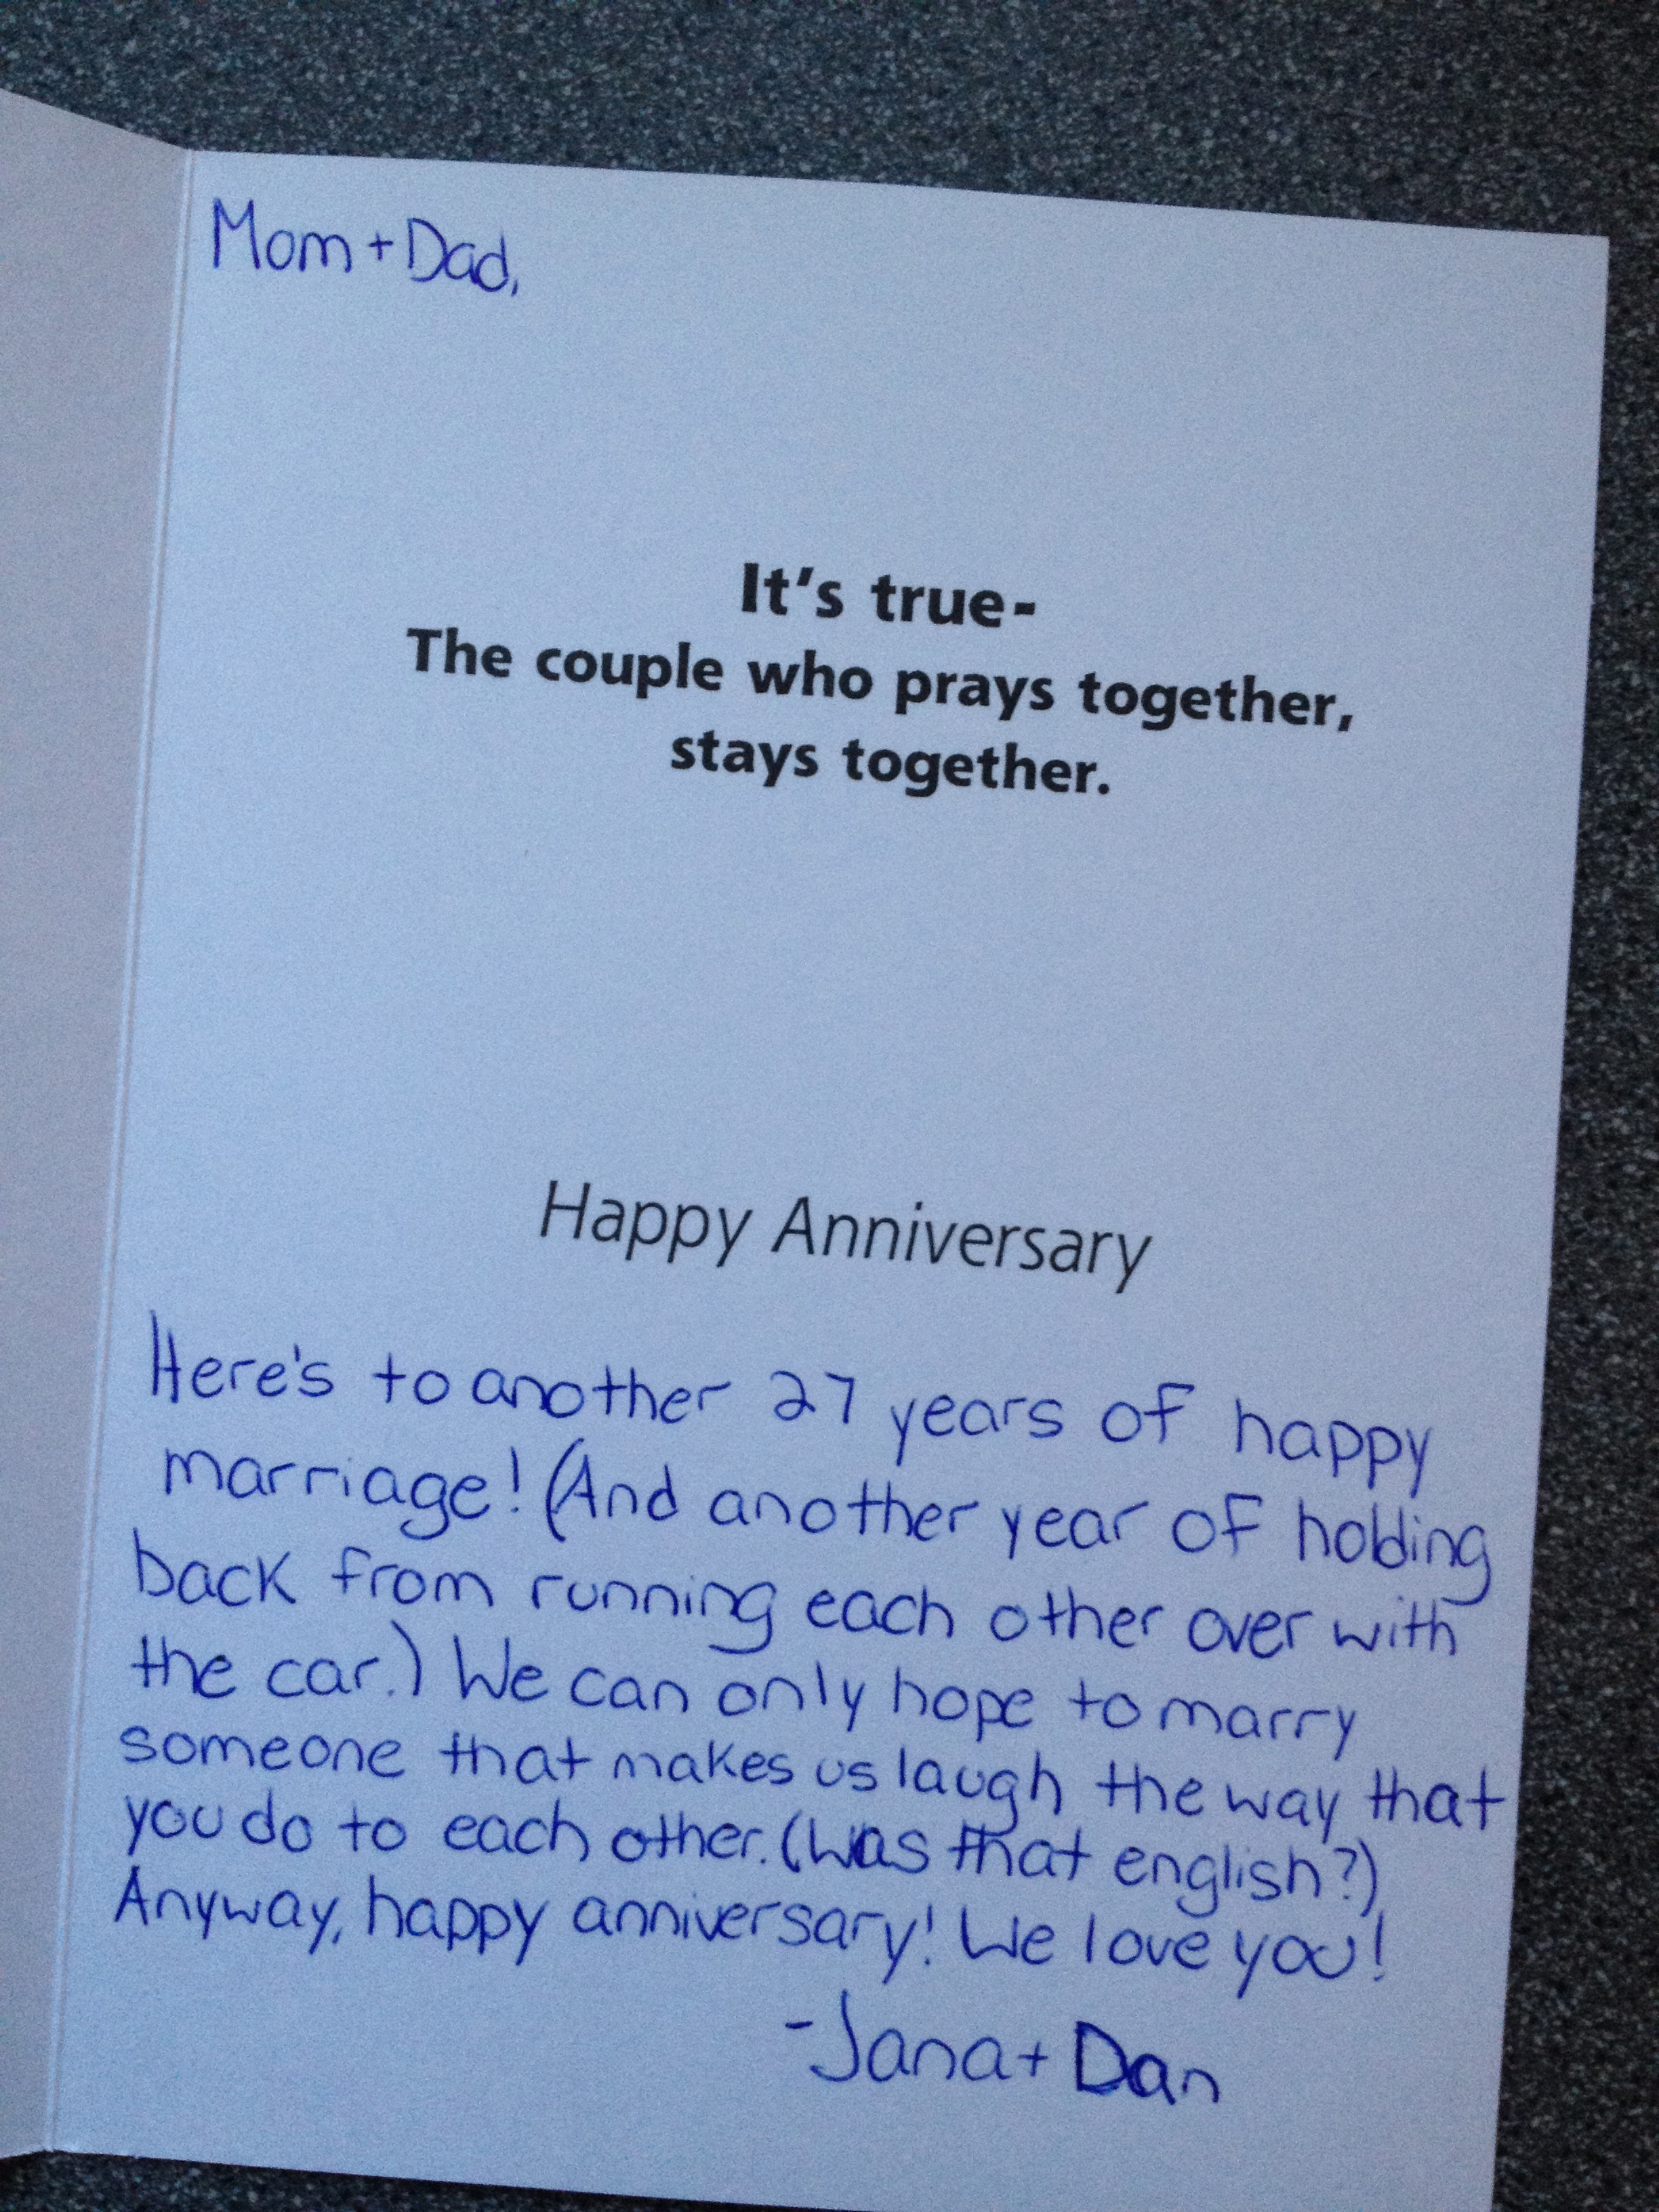 Mom + Dad,
It's true-
The couple who prays together,
stays together.
Happy Anniversary
Here's to another 27 years of happy
marriage! (And another year of holding
back from running each other over with
the car.) We can only hope to marry
someone that makes us laugh the way that
you do to each other. (Was that english?)
Anyway, happy anniversary! We love you!
-Jana + Dan